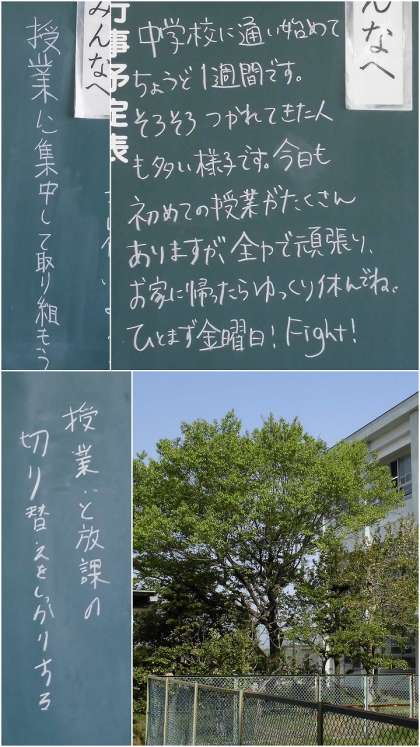 授業に集中して取り組もう
みんなへ
行事予定表
んなへ
中学校に通い始めて
ちょうど1週間です。
そろそろつかれてきた人
も多い様子です。今日も
初めての授業がたくさん
ありますが、全力で頑張り、
お家に帰ったらゆっくり休んでね。
ひとまず金曜日! Fight!
授業と放課の
切り替えをしっかりする